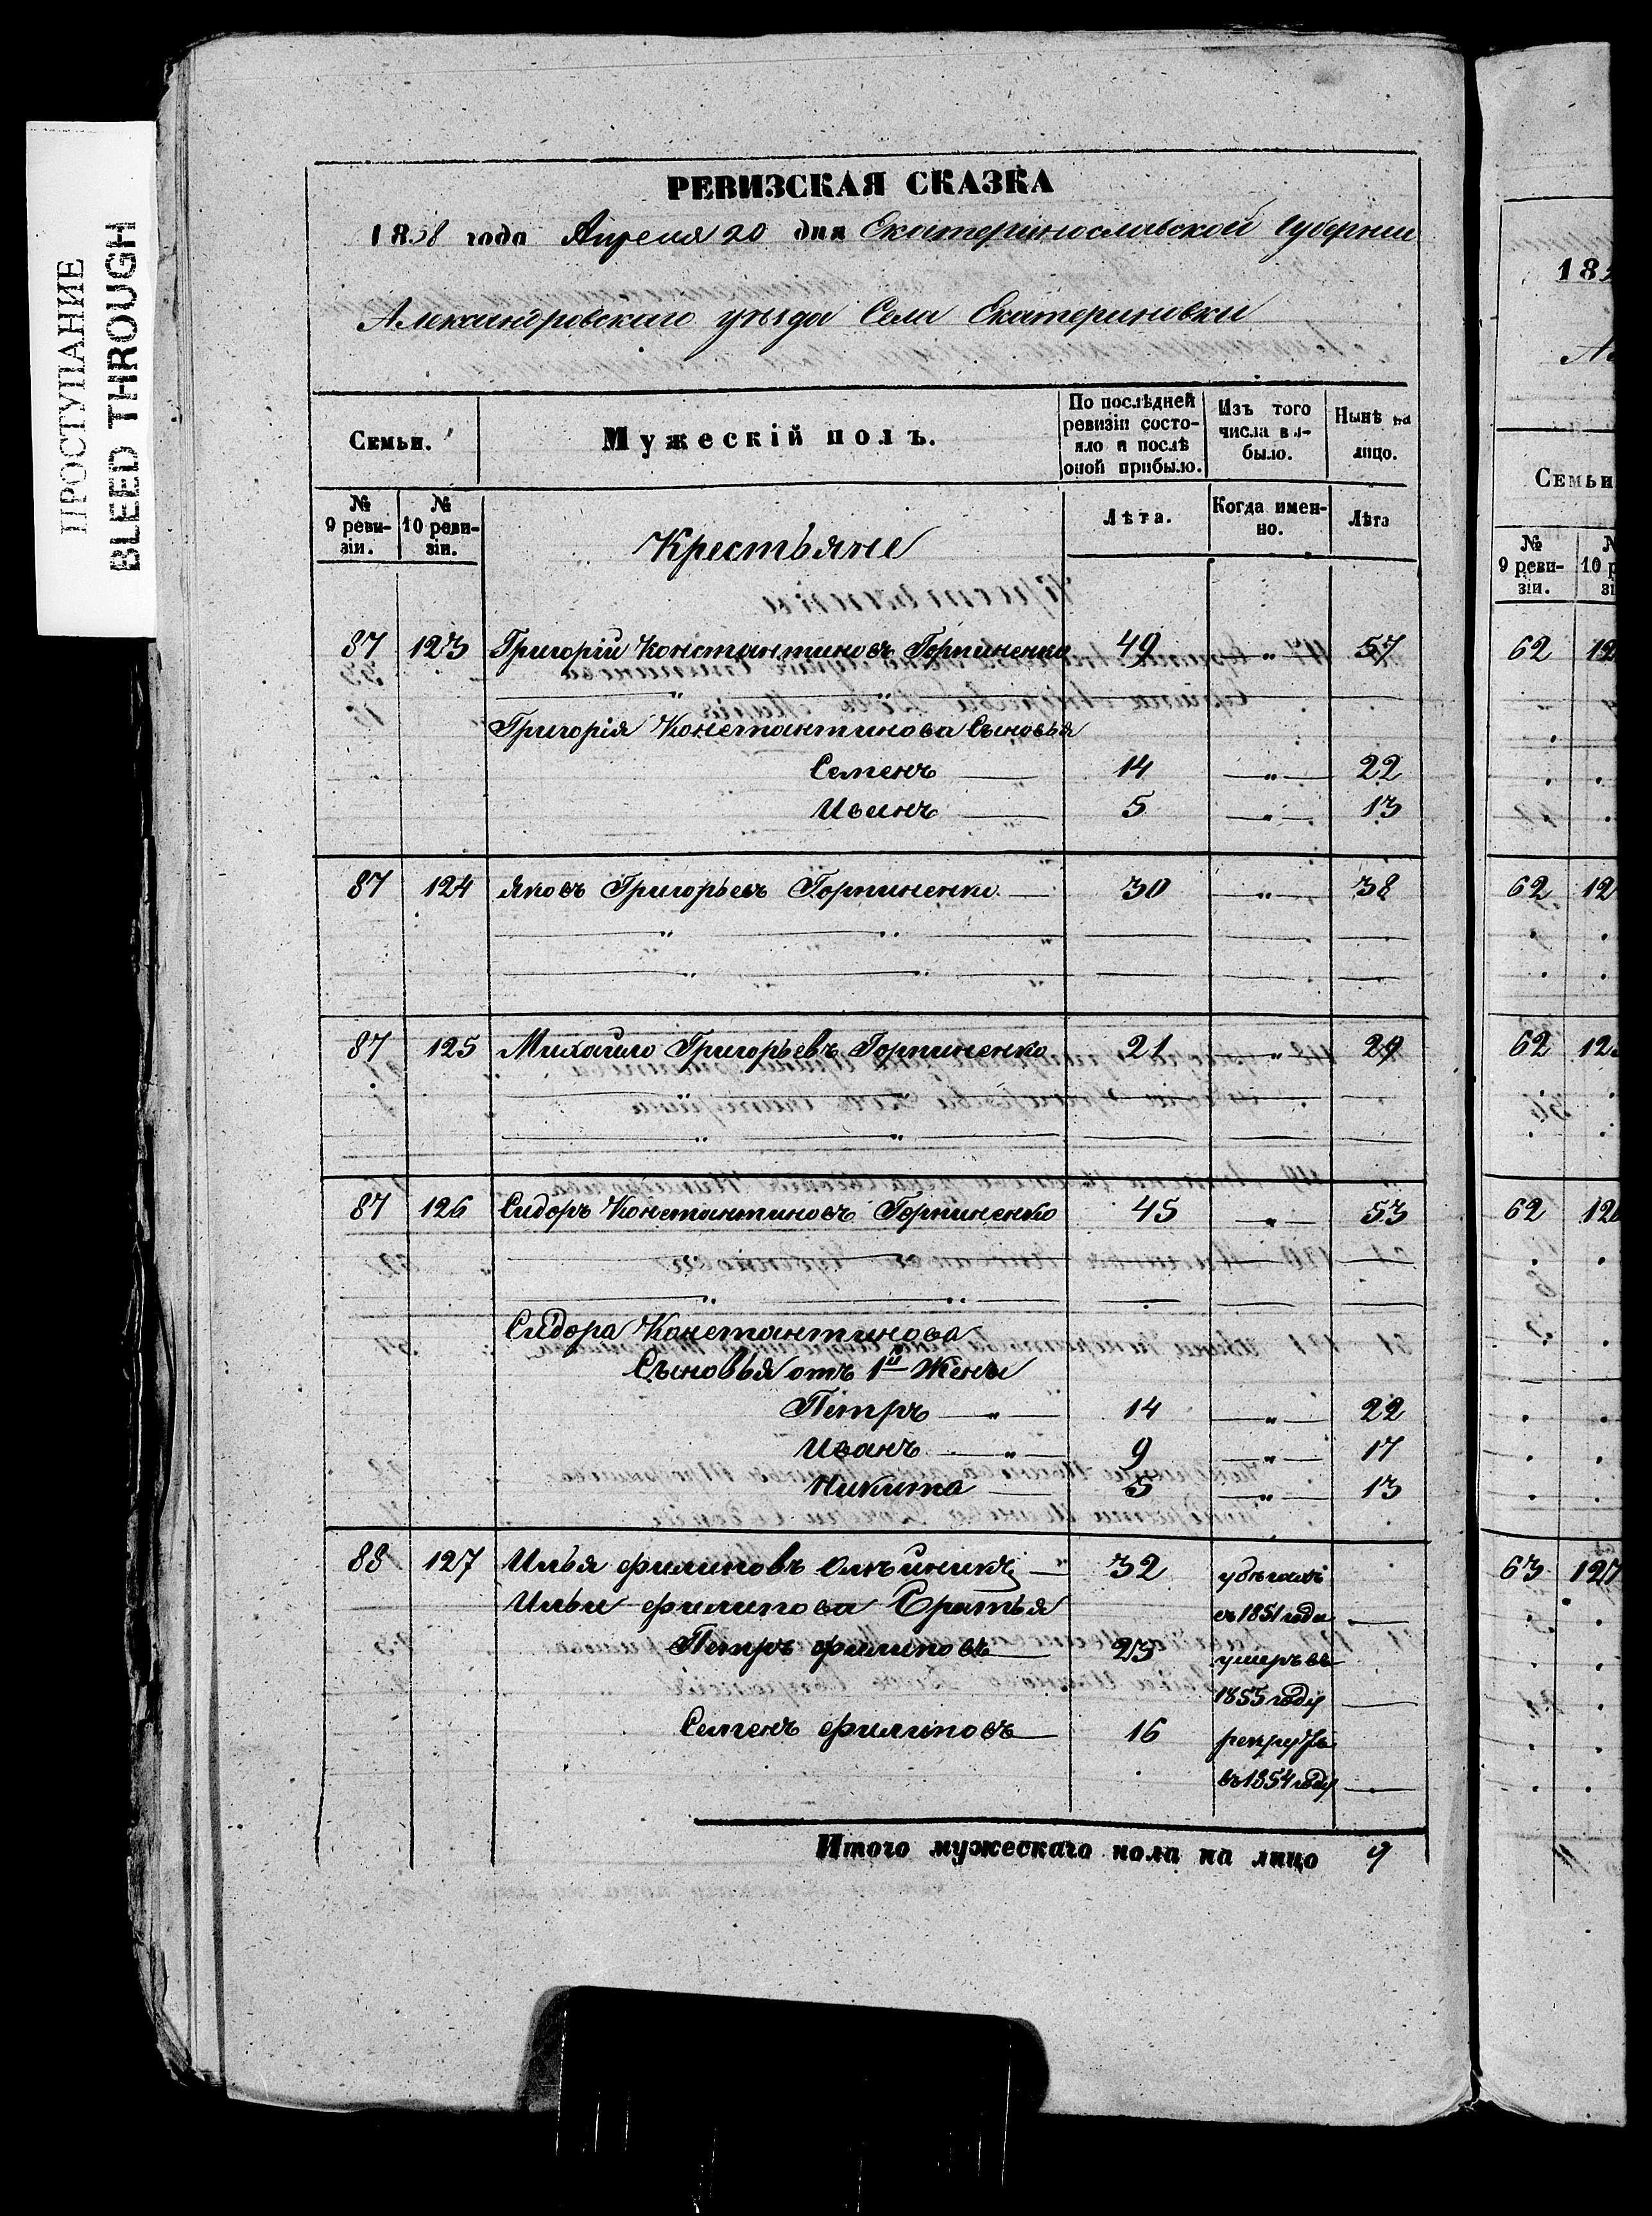 ПРОСТУПАНИЕ
BLEED THROUGH
РЕВИЗСКАЯ СКАЗКА
1858 года Апреля 20 дня Екатеринославской Губернии
Александровского уѣзда Села Екатериновки
Семьи.
Мужескій полъ.
По послѣдней ревизіи состояло и послѣ оной прибыло.
Изъ того числа выбыло.
Нынѣ на лицо.
№ 9 ревизіи.
№ 10 ревизіи.
Крестьяне
Лѣта.
Когда именно.
Лѣта
87 123 Григорій Константиновъ Горпиненко 49 " 57
Григорія Константинова Сыновья
Семенъ 14 " 22
Иванъ 5 " 13
87 124 Яковъ Григорьевъ Горпиненко 30 " 38
87 125 Михайло Григорьевъ Горпиненко 21 " 29
87 126 Сидоръ Константиновъ Горпиненко 45 " 53
Сидора Константинова
Сыновья отъ 1й Жены
Петръ " 14 " 22
Иванъ " 9 " 17
Никита 5 " 13
88 127 Илья Филиповъ 32
Ильи Филипова Братья въ 1851 годи
Петръ Филиповъ 23 умеръ въ
1855 году
Семенъ Филиповъ 16 рекрутъ
въ 1854 году
Итого мужескаго пола на лицо 9
18
Семьи
№ 9 ревизіи.
62
62
62
62
63 127